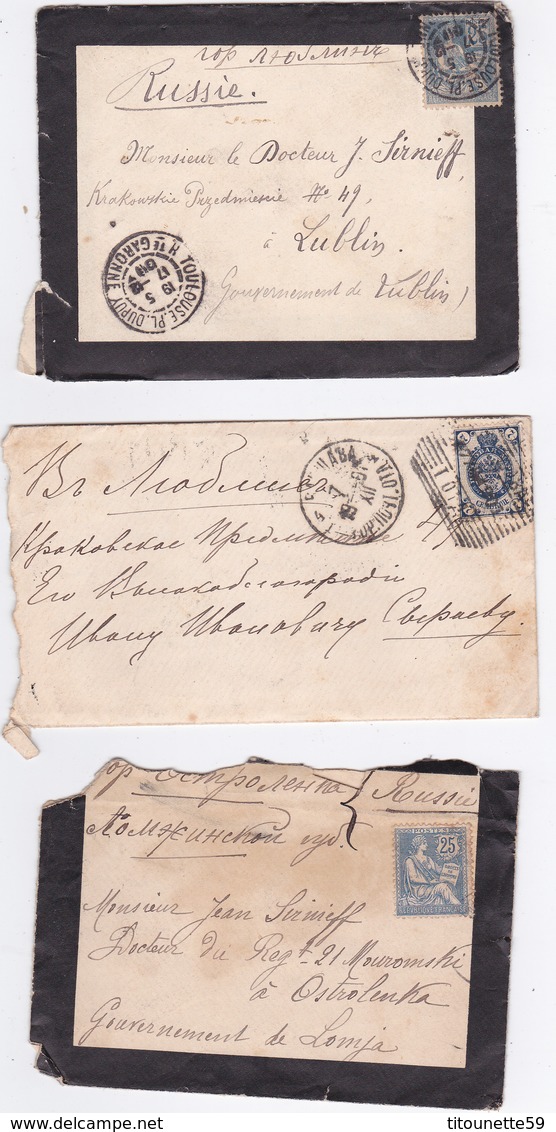 гор Люблинъ
Russie.
Monsieur le Docteur J. Sirnieff,
Krakowskie Przedmiescie № 49,
à Lublin.
(Gouvernement de Lublin)
TOULOUSE. PL. DUPUY
Hte GARONNE
25
Въ Люблинъ
Краковское Предмѣстье 49
Его Высокоблагородію
Ивану Ивановичу Сырневу.
7
гор Остроленка
Russie
Ломжинской губ.
POSTES
25c
REPUBLIQUE FRANÇAISE
Monsieur Jean Sirnieff
Docteur du Regt 21 Mouromski
à Ostrolenka
Gouvernement de Lomja
www.delcampe.net
titounette59